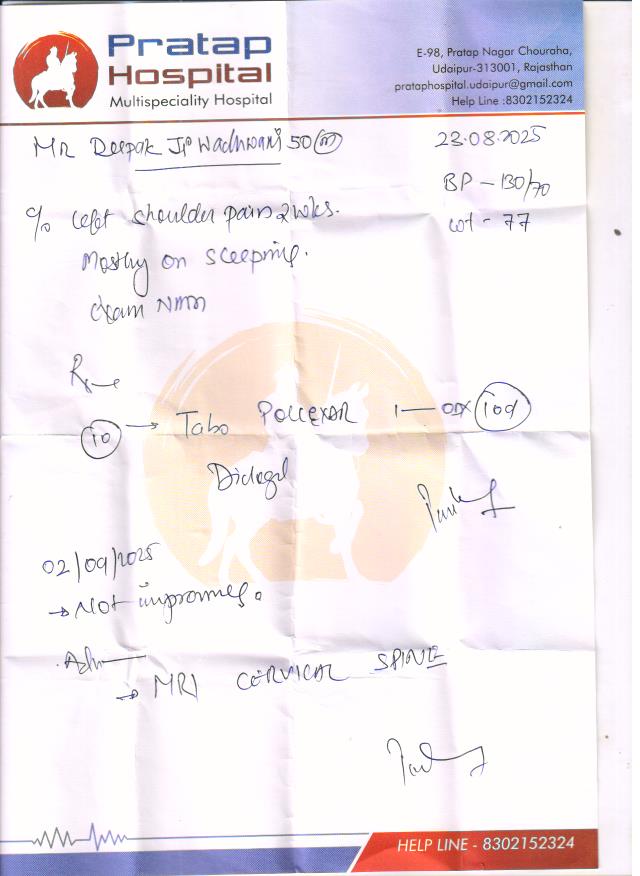 Pratap
Hospital
Multispeciality Hospital
E-98, Pratap Nagar Chouraha,
Udaipur-313001, Rajasthan
prataphospital.udaipur@gmail.com
Help Line :8302152324
Mr Deepak Ji Wadhwani 50 (m)
23.08.2025
BP - 130/70
wt - 77
c/o left shoulder pain 2 wks.
Mostly on sleeping.
exam
Rx
10 → Tab POLLEXAR 1 — OD x 10d
02/09/2025
→ Not improving.
Adv
→ MRI CERVICAL SPINE
HELP LINE - 8302152324